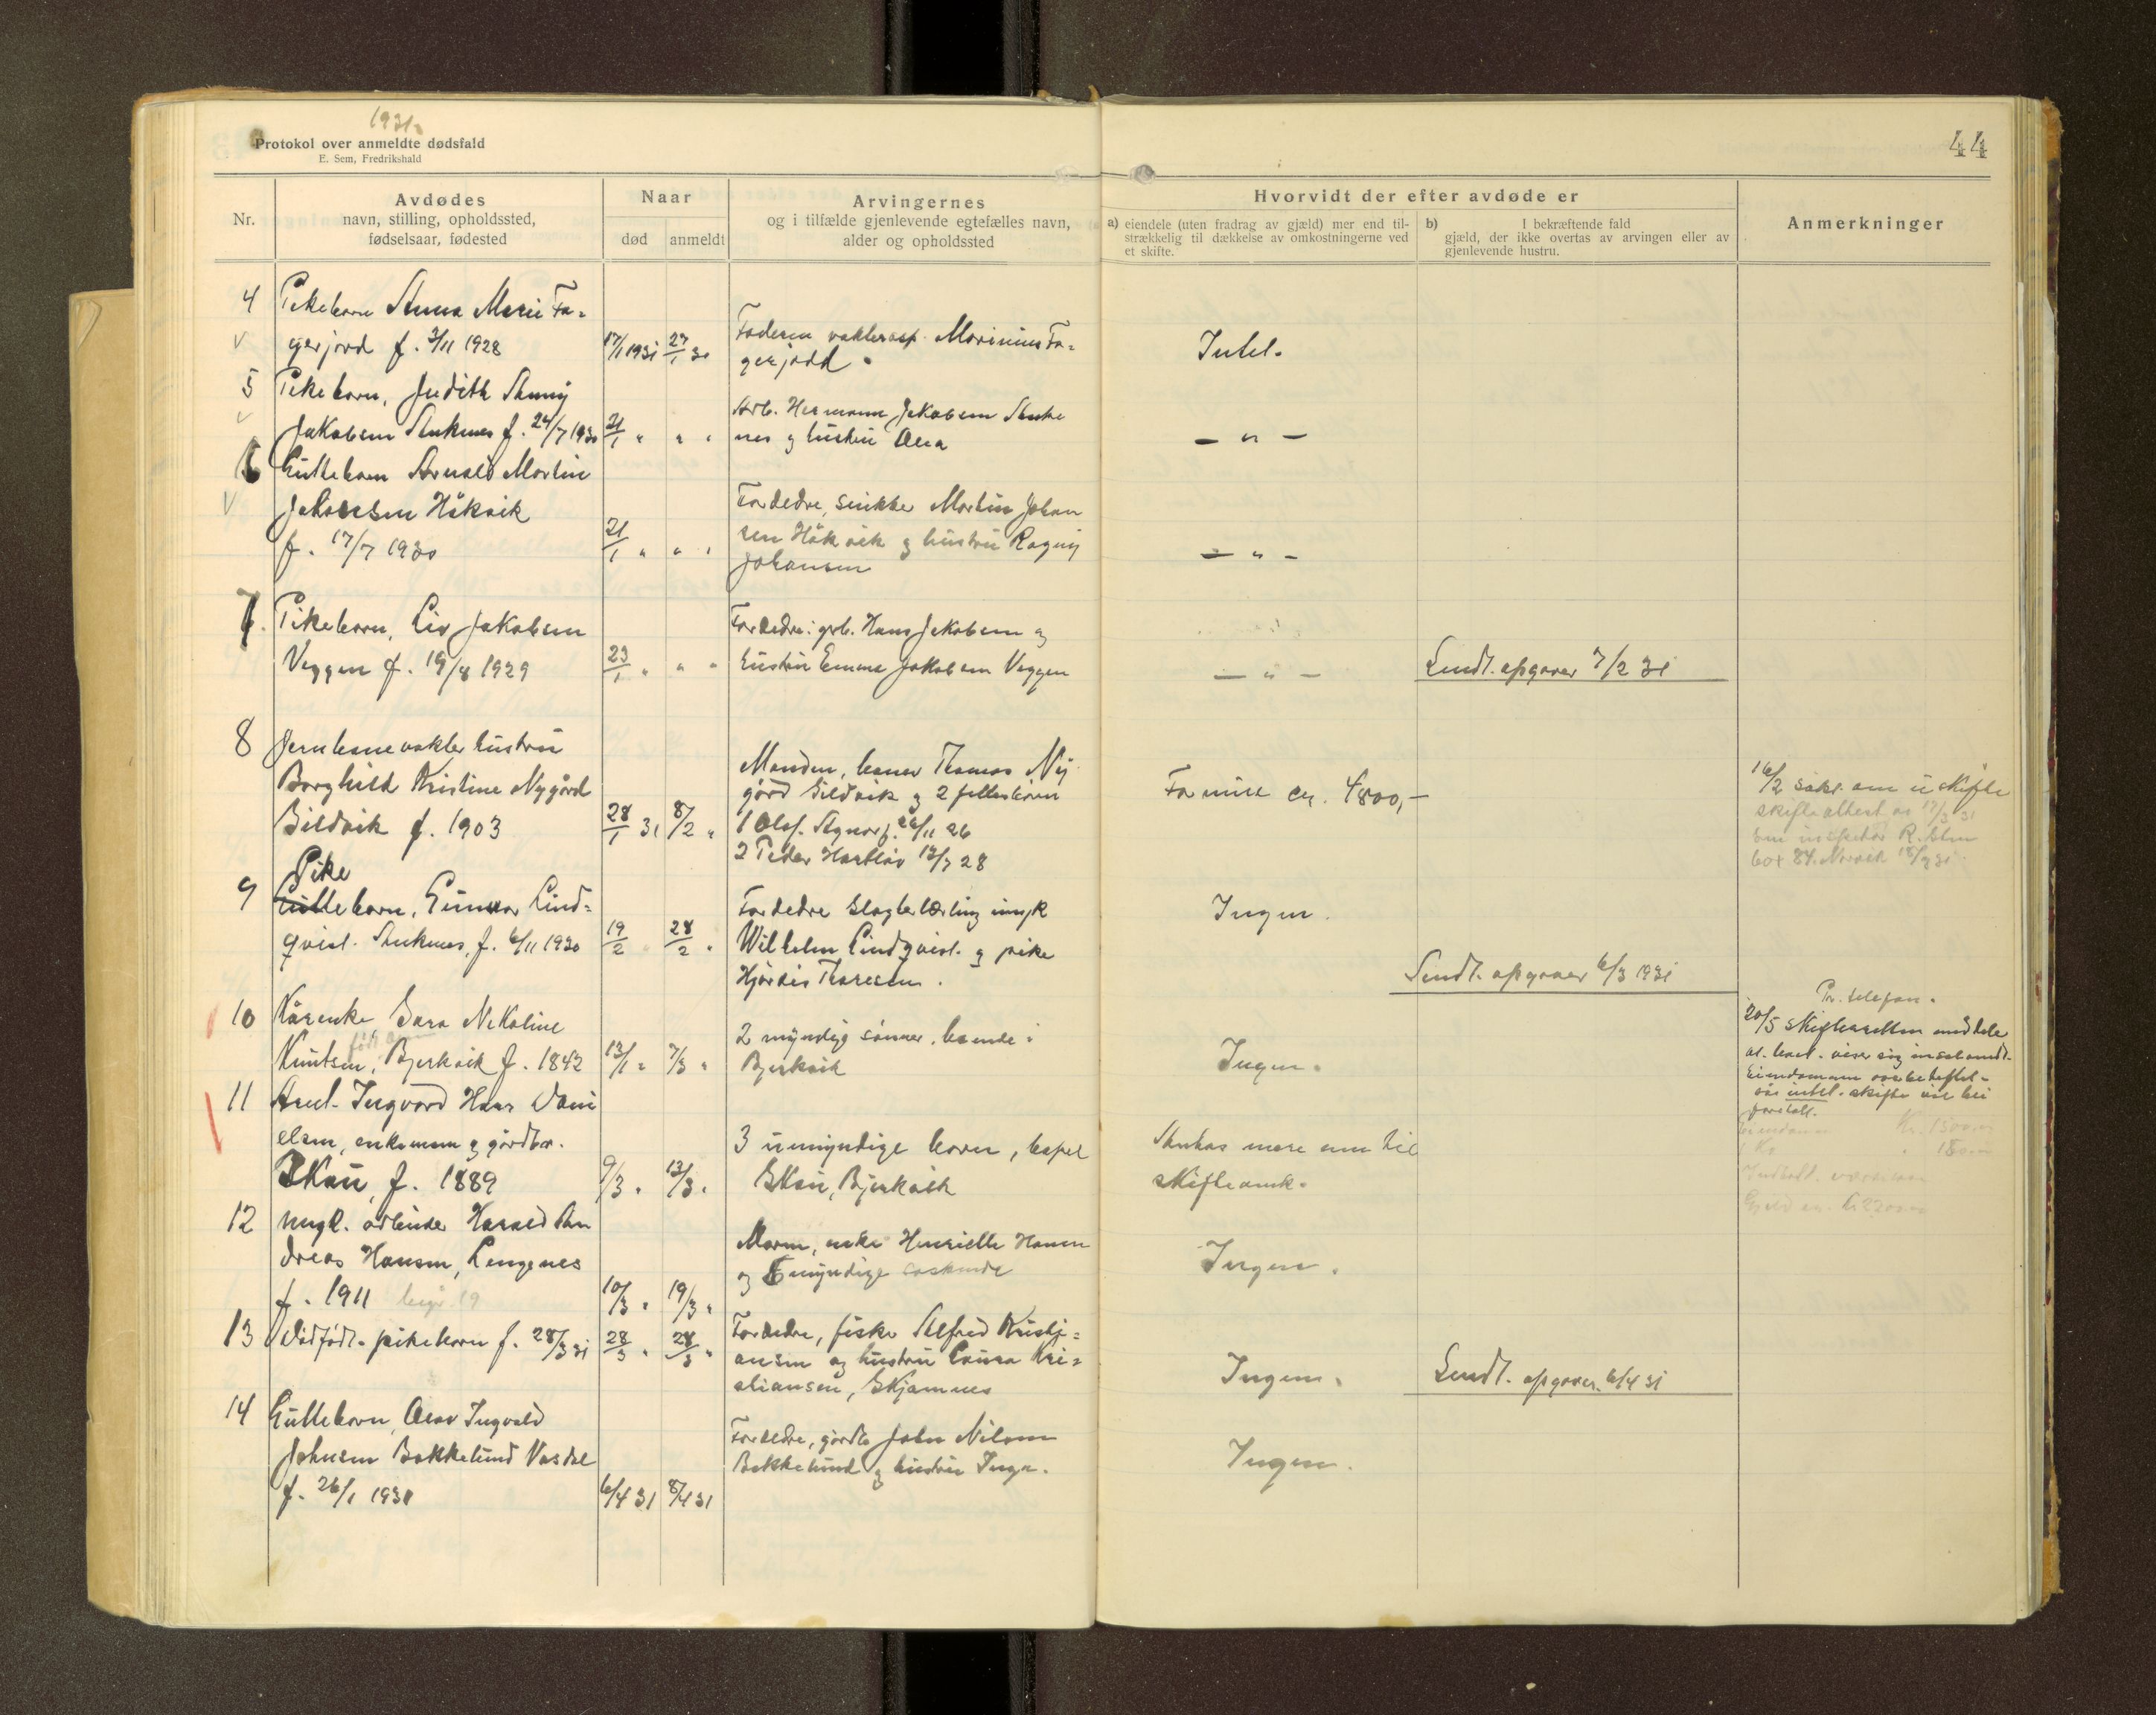 1931.
Protokol over anmeldte dødsfald
E. Sem, Fredrikshald
44
Nr.
Avdødes
navn, stilling, opholdssted,
fødselsaar, fødested
Naar
død
anmeldt
Arvingernes
og i tilfælde gjenlevende egtefælles navn,
alder og opholdssted
Hvorvidt der efter avdøde er
a) eiendele (uten fradrag av gjæld) mer end til-
strækkelig til dækkelse av omkostningerne ved
et skifte.
b) I bekræftende fald
gjæld, der ikke overtas av arvingen eller av
gjenlevende hustru.
Anmerkninger
4 Pikebarn Anna Marie Fa-
gerjord f. 3/11 1928
17/1 1931 27/1 31
Faderen vakterasp. Marinius Fa-
gerjord
Intet.
5 Pikebarn, Judith Anny
Jakobsen Ankenes f. 24/7 1930
21/1 " " "
Arb. Hermann Jakobsen Anke
nes g hustru Alea
— " —
6 Guttebarn Arnald Martin
Johansen Håkvik
f. 17/7 1930
21/1 " " "
Foreldre, snikker Martin Johan
sen Håkvik g hustru Ragny
Johansen
— " —
7. Pikebarn, Liv Jakobsen
Veggen f. 19/8 1929
23/1 " " "
Foreldre: grb. Hans Jakobsen og
hustru Emma Jakobsen Veggen
— " —
Sendt. opgaver 7/2 31
8 Jernbanevakter hustru
Borghild Kristine Nygård
Sildvik f. 1903
28/1 31 8/2 "
Manden, baner Thomas Ny
gård Sildvik g 2 fellesbarn
1 Olaf Agnar f. 26/11 26
2 Peder Hartløv 12/7 28
Formue ca. 4800,-
16/2 søkt om u skifte
skifteattest av 17/3 31
box 84. Narvik
9 Pike
Guttebarn, Gunvor Lind-
qvist. Ankenes, f. 6/11 1930
19/2 28/2 "
Foreldre slagterlærling ungk
Wilhelm Lindqvist. g pike
Hjørdis Thoresen.
Ingen.
Sendt. opgaver 6/3 1931
10 Kårenke, Sara Nikoline
Knutsen, Bjerkvik f. 1842
13/1 " 7/3 "
2 myndig sønner, boende i
Bjerkvik
Ingen.
Pr. telefon.
20/5 skifteretten
11 Anl. Ingvard Hans Dani
elsen, enkemann g gårdbr.
Skau, f. 1889
9/3 " 13/3 "
3 umyndige barn, bopel
Skau, Bjerkvik
Antas mere enn til
skifteomk.
intet. skifte
Kr. 1500.00
12 ungk. arbeider Harald An
dreas Hansen, Lengenes
f. 1911
10/3 " 19/3 "
Moren, enke Henriette Hansen
og 6 myndige søskende
Ingen.
13 Dødfødt. pikebarn f. 28/3 31
28/3 " 28/3 "
Foreldre, fisker Alfred Kristi-
ansen og hustru Laura Kri-
stiansen, Skjomnes
Ingen.
Sendt. opgaver. 6/4 31
14 Guttebarn, Olav Ingvald
Johnsen Bakkelund Vasdal
f. 26/1 1931
6/4 31 8/4 31
Foreldre, gårdb John Nilsen
Bakkelund g hustru Inga.
Ingen.